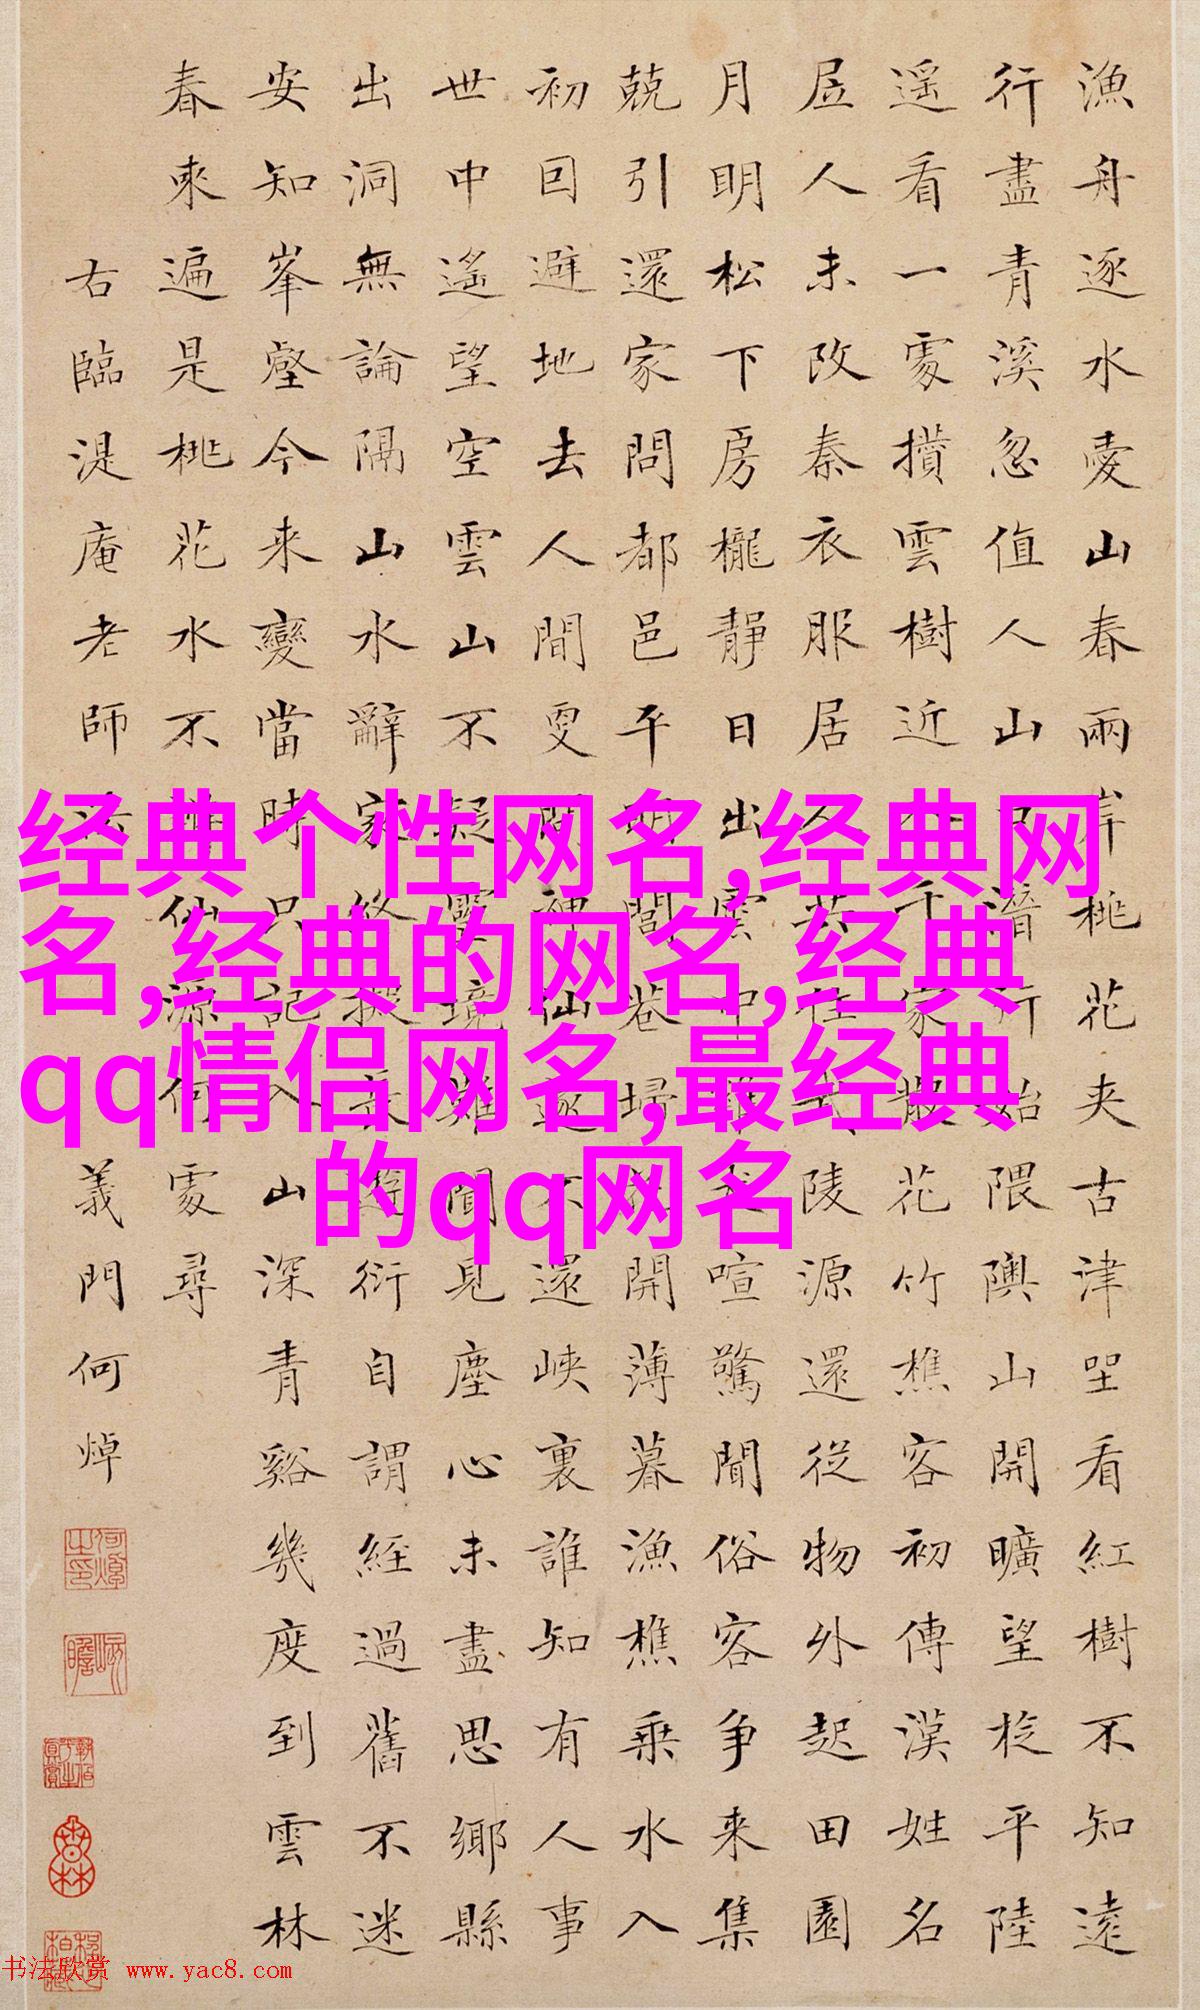 漁舟逐水愛山春兩岸桃花夾古津坐看紅樹不知遠
行盡青溪忽值人山口潛行始隈隩山開曠望旋平陸
遥看一處攢雲樹近入千家散花竹樵客初傳漢姓名
居人未改秦衣服居人共住武陵源還從物外起田園
月明松下房櫳靜日出雲中雞犬喧驚聞俗客爭来集
兢引還家問都邑平明閭巷掃花開薄暮漁樵乘水入
初回避地去人間更問神仙遂不還峽裏誰知有人事
世中遙望空雲山不疑靈境難聞見塵心未盡思鄉縣
出洞無論隔山水辭家終擬長遊衍自謂經過舊不迷
安知峯壑今来變當時只記入山深青谿幾度到雲林
春來遍是桃花水不辨仙源何處尋
右臨湜庵老師 義門何焯
经典个性网名,经典网
名,经典的网名,经典
qq情侣网名,最经典
的qq网名
书法欣赏 www.yac8.com